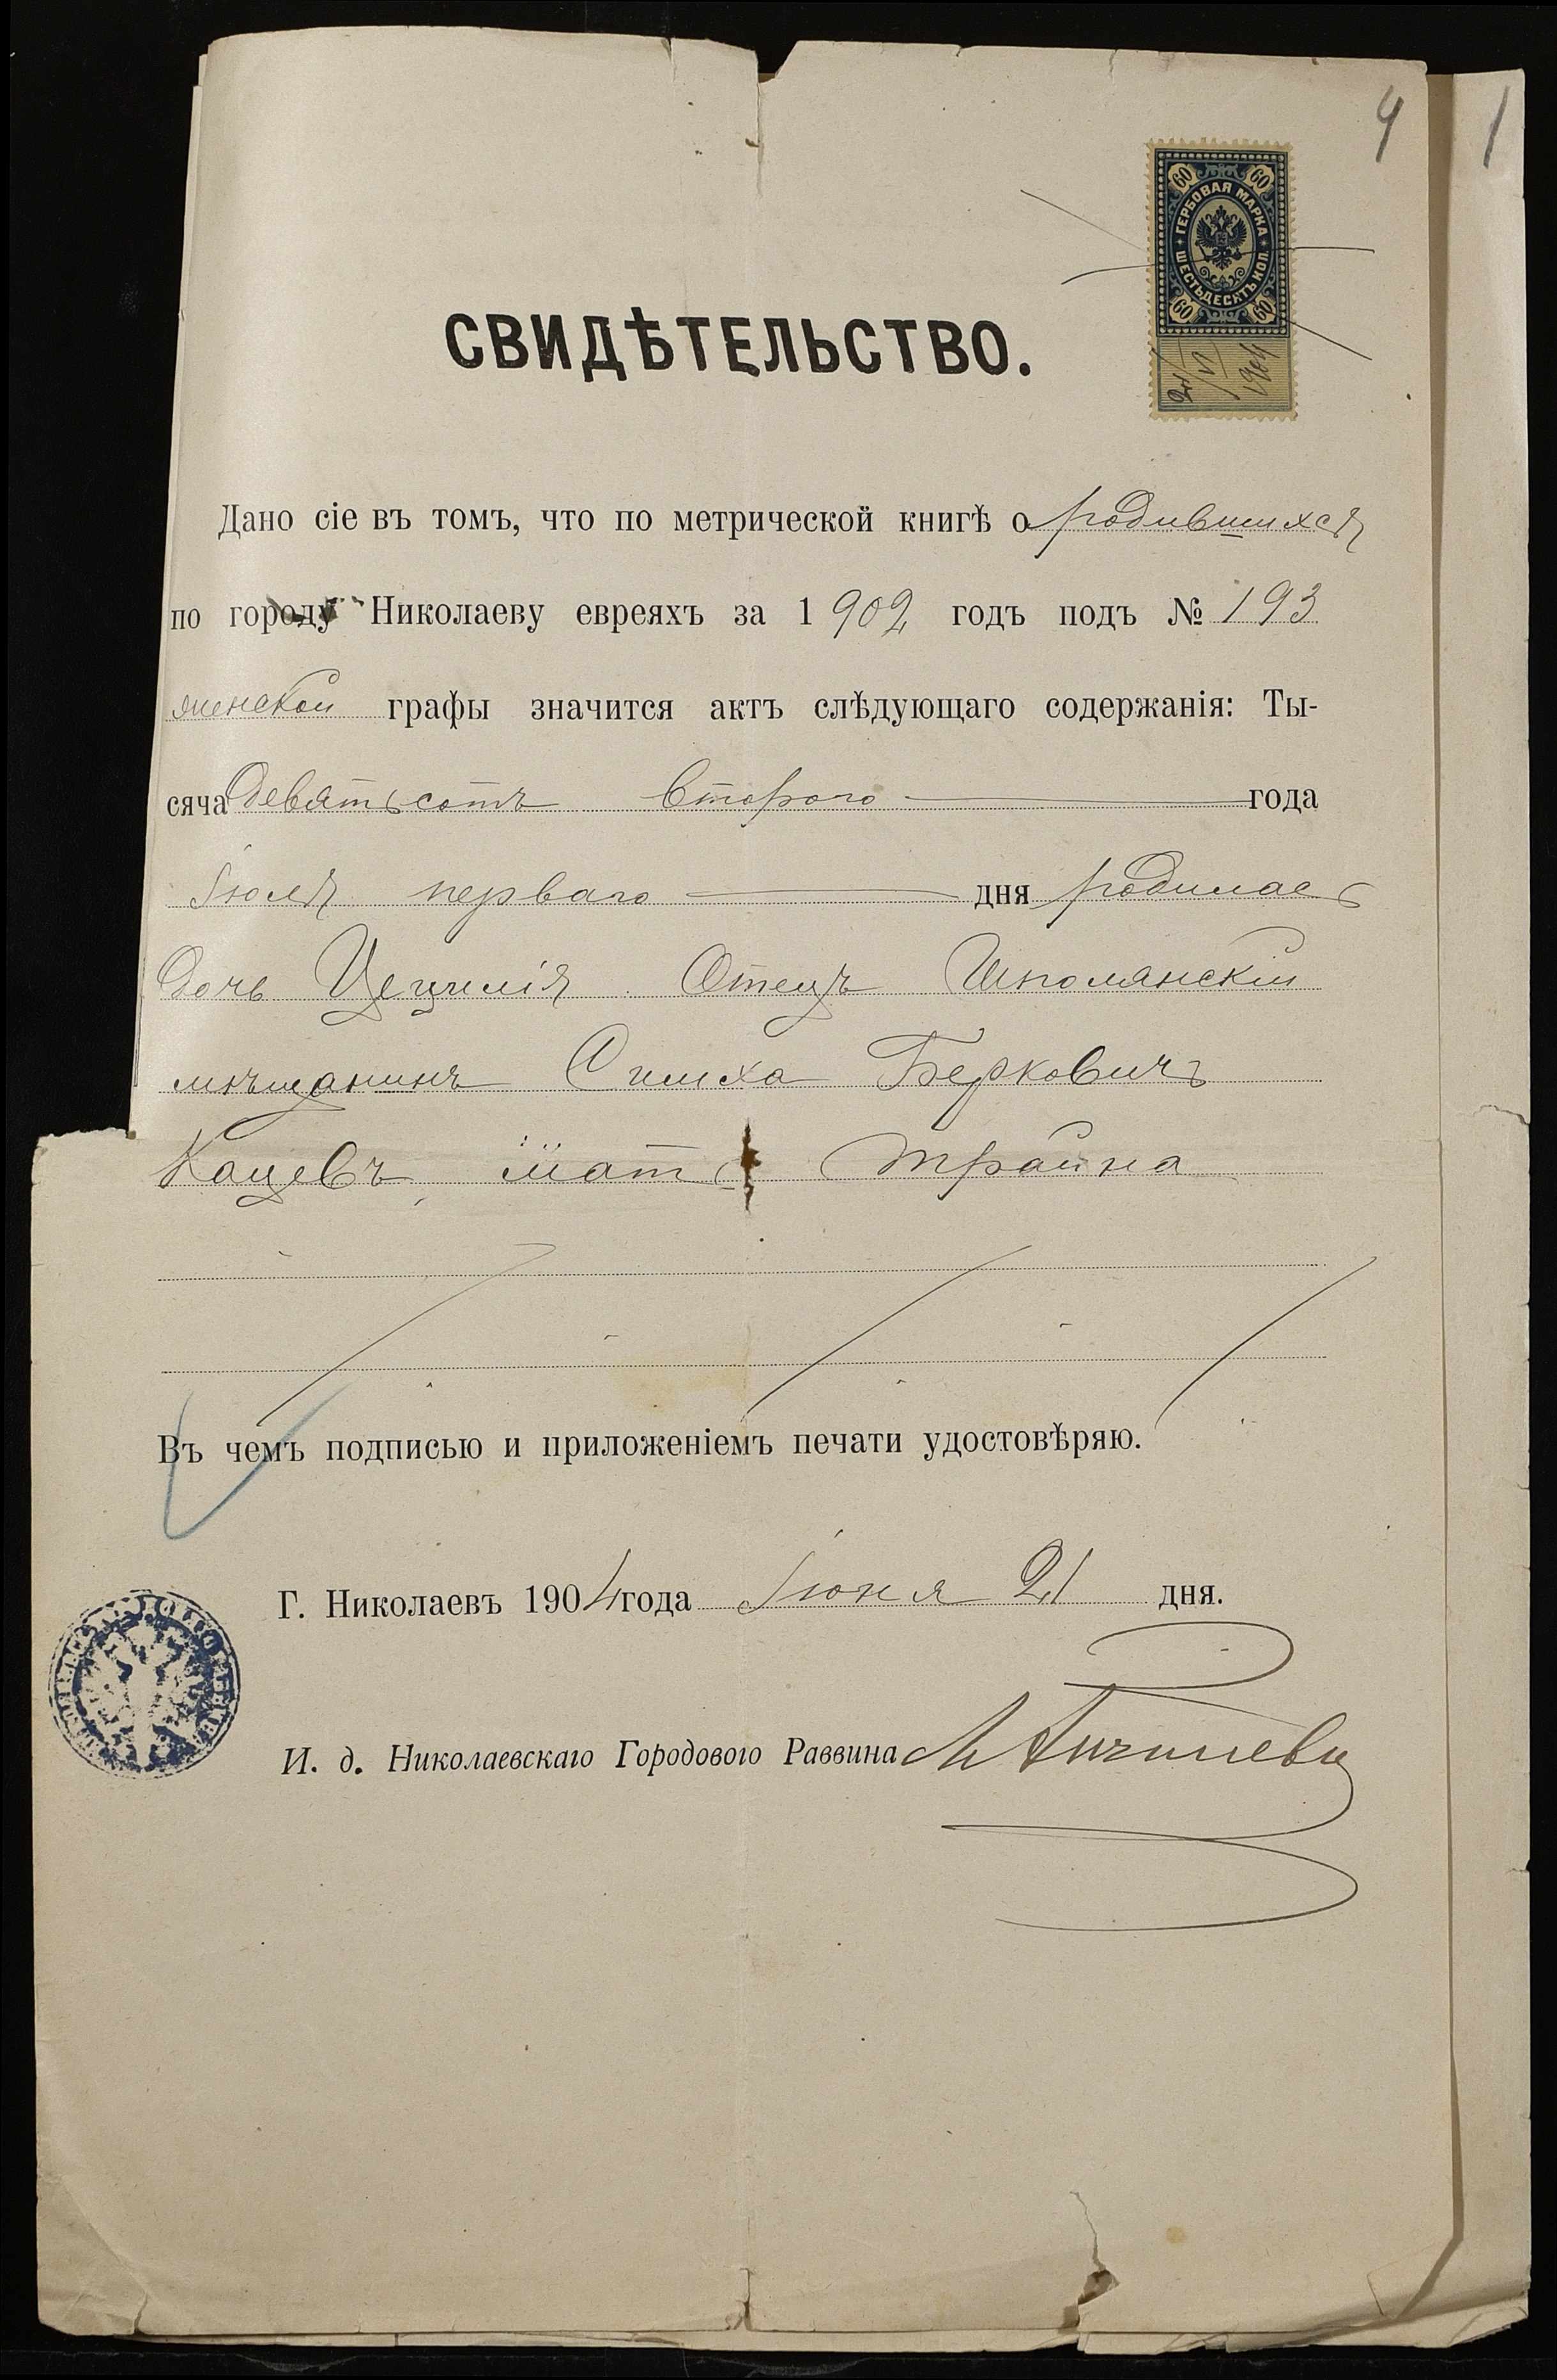 4 1
60 60
ГЕРБОВАЯ МАРКА
ШЕСТЬДЕСЯТЪ КОП.
60 60
21/VI 1904
СВИДѢТЕЛЬСТВО.
Дано сіе въ томъ, что по метрической книгѣ о родившихся
по городу Николаеву евреяхъ за 1902 годъ подъ № 193
женской графы значится актъ слѣдующаго содержанія: Ты-
сяча девятьсотъ второго года
Іюля перваго дня родилась
дочь Цецилія. Отецъ Шполянскій
мѣщанинъ Симха Берковичъ
Кацевъ, мать Трайна
Въ чемъ подписью и приложеніемъ печати удостовѣряю.
Г. Николаевъ 1904 года Іюня 21 дня.
И. д. Николаевскаго Городового Раввина